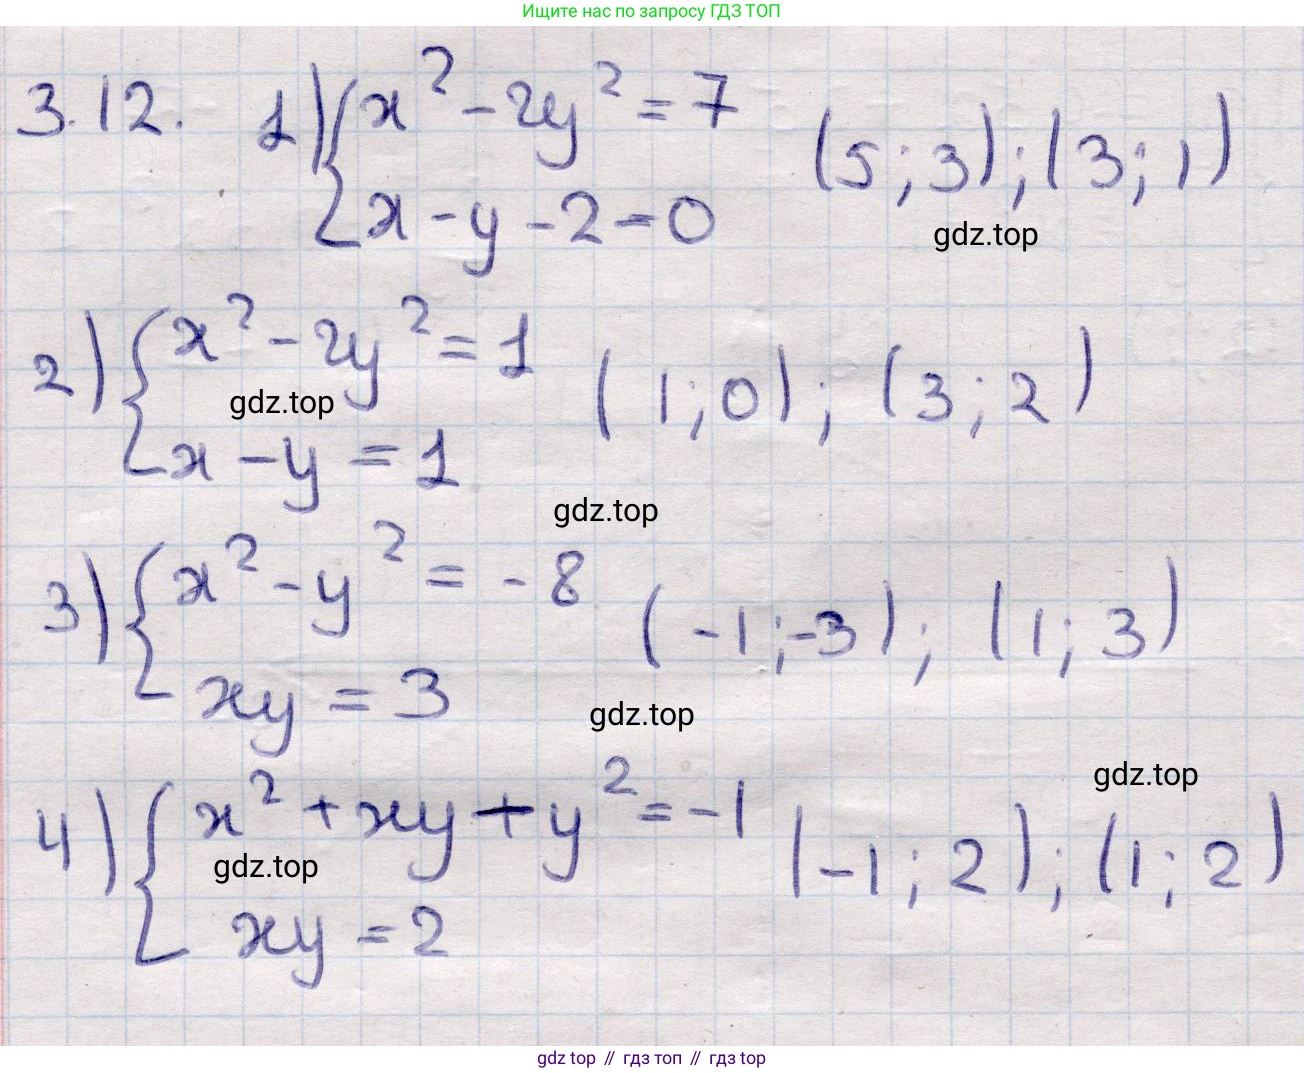 Ищите нас по запросу ГДЗ ТОП
3.12. 1) { x² - 2y² = 7
x - y - 2 = 0
(5; 3); (3; 1)
gdz.top
2) { x² - 2y² = 1
x - y = 1
(1; 0); (3; 2)
gdz.top
gdz.top
3) { x² - y² = - 8
xy = 3
(-1; -3); (1; 3)
gdz.top
gdz.top
4) { x² + xy + y² = -1
xy = 2
(-1; 2); (1; 2)
gdz.top
gdz top // гдз топ // gdz top